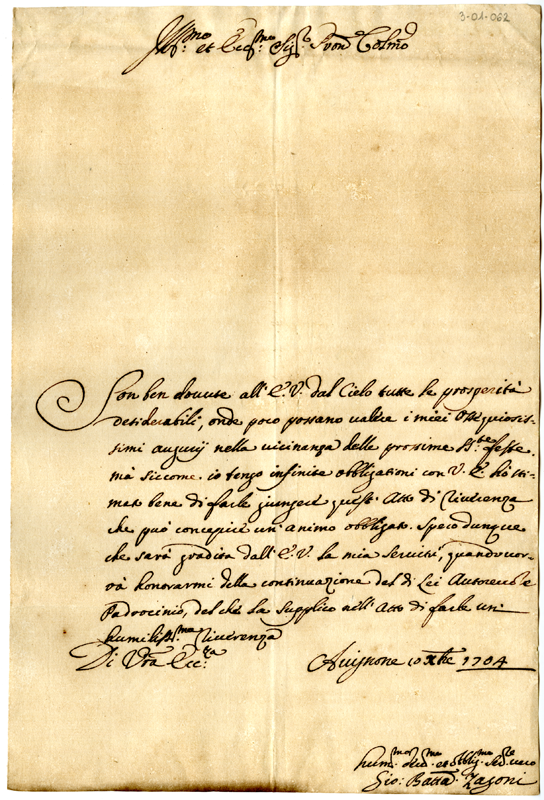 3-01-062
Ill.mo et Ecc.mo Sig.r Pron Colmo
Son ben dovute all'E.V. dal Cielo tutte le prosperità
desiderabili, onde poco possano valere i miei Ossequiosis-
simi augurij nella vicinanza delle prossime S.te feste.
mà siccome io tengo infinite obbligationi con V.E. hò sti-
mato bene di farle giungere quest'Atto di Riverenza
che può concepire un'animo obbligato. Spero dunque
che sarà gradita dall'E.V. la mia servitù, quando vor-
rà honorarmi della continuazione del di Lei Autorevole
Padrocinio, del chè La supplico nell'Atto di farle un:
humiliss.ma Riverenza
Di Vra Ecc.za
Avignone 10 Xbre 1704
hum.mo dev.mo et obblig.mo Se.re vero
Gio: Batta Zagoni